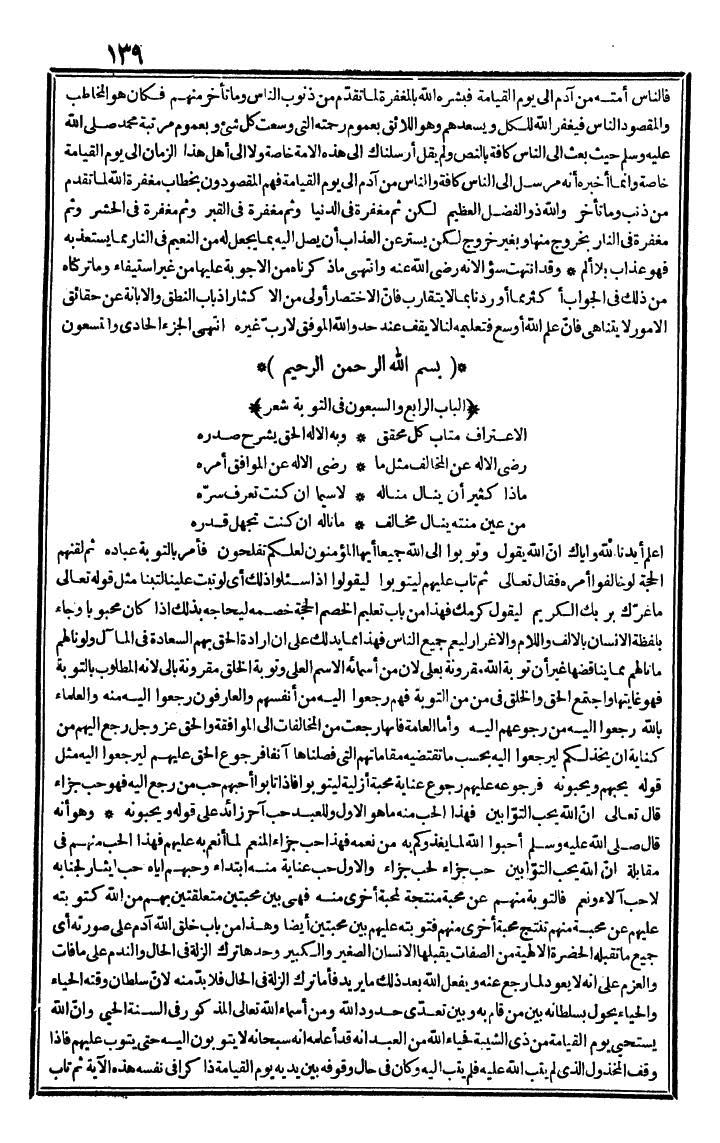 ١٣٩
فالناس أمتـه من آدم الى يوم القيامة فبشره الله بالمغفرة لما تقدّم من ذنوب الناس وما تأخر منهـم فكان هو المخاطب
والمقصود الناس فيغفر الله للكل ويسعدهم وهو اللائق بعموم رحمته التى وسعت كل شئ وبعموم مرتبة محمد صلى الله
عليه وسلم حيث بعث الى الناس كافة بالنص ولم يقل أرسلناك الى هذه الامة خاصة ولا الى أهل هذا الزمان الى يوم القيامة
خاصة وانما أخبره أنه مرسل الى الناس كافة والناس من آدم الى يوم القيامة فهم المقصودون بخطاب مغفرة الله لما تقدم
من ذنب وما تأخر والله ذو الفضل العظيم لكن ثم مغفرة فى الدنيا وثم مغفرة فى القبر وثم مغفرة فى الحشر وثم
مغفرة فى النار بخروج منها وبغير خروج لكن يستر عن العذاب أن يصل اليه بما يجعل له من النعيم فى النار مما يستعذبه
فهو عذاب بلا ألم * وقد انتهت سؤالاته رضى الله عنه وانتهى ما ذكرناه من الاجوبة عليها من غير استيفاء وما تركناه
من ذلك فى الجواب أكثر مما أوردنا بما لا يتقارب فانّ الاختصار أولى من الاكثار اذ باب النطق والابانة عن حقائق
الامور لا يتناهى فانّ علم الله أوسع فتعليمه لنا لا يقف عند حد والله الموفق لا ربّ غيره انتهـى الجزء الحادى والتسعون
*( بسم الله الرحمن الرحيم )*
﴿الباب الرابع والسبعون فى التوبة شعر﴾
الاعتراف متاب كل محقق * وبه الاله الحق يشرح صدره
رضى الاله عن المخالف مثل ما * رضى الاله عن الموافق أمره
ماذا كثير أن ينال مناله * لاسيما ان كنت تعرف سرّه
من عين منته ينال مخالف * ما ناله ان كنت تجهل قدره
اعلم أيدنا الله واياك انّ الله يقول وتوبوا الى الله جميعا أيها المؤمنون لعلكم تفلحون فأمر بالتوبة عباده ثم لقنهم
الحجة لو خالفوا أمره فقال تعالى ثم تاب عليهم ليتوبوا ليقولوا اذا سئلوا ذلك أى لو تبت علينا لتبنا مثل قوله تعالى
ما غرّك بربك الكريم ليقول كرمك فهذا من باب تعليم الخصم الحجة خصمه ليحاجه بذلك اذا كان محبوبا وجاء
بلفظة الانسان بالالف واللام والاغرار ليعم جميع الناس فهذا مما يدلك على ان ارادة الحق بهم السعادة فى المآل ولو نالهم
ما نالهم مما يناقضها غير أن توبة الله مقرونة بعلى لان من أسمائه الاسم العلى وتوبة الخلق مقرونة بالى لانه المطلوب بالتوبة
فهو غايتها واجتمع الحق والخلق فى من من التوبة فهم رجعوا اليـه من أنفسهم والعارفون رجعوا اليـه منه والعلماء
بالله رجعوا اليـه من رجوعهم اليـه وأما العامة فانها رجعت من المخالفات الى الموافقة والحق عز وجل رجع اليهم من
كناية ان يخذلكم ليرجعوا اليه بحسب ما تقتضيه مقاماتهم التى فصلناها آنفا فرجوع الحق عليهـم ليرجعوا اليه مثل
قوله يحبهم ويحبونه فرجوعه عليهم رجوع عناية محبة أزلية ليتوبوا فاذا تابوا أحبهم حب من رجع اليه فهو حب جزاء
قال تعالى انّ الله يحب التوّابين فهذا الحب منه ما هو الاول وللعبد حب آخر زائد على قوله ويحبونه * وهو أنه
قال صلى الله عليه وسلم أحبوا الله لما يغذوكم به من نعمه فهذا حب جزاء المنعم لما أنعم به عليهم فهذا الحب منهـم فى
مقابلة انّ الله يحب التوّابين حب جزاء لحب جزاء والاول حب عناية منـه ابتداء وحبهـم اياه حب ايثار لجنابه
لا حب آلاء ونعم فالتوبة منهـم عن محبة منتجة لمحبة أخرى منـه فهى بين محبتين متعلقتين بهـم من الله كتوبته
عليهم عن محبـة منهم تنتج محبة أخرى منهم فتوبته عليهم بين محبتين أيضا وهذا من باب خلق الله آدم على صورته أى
جميع ما تقبله الحضرة الالهية من الصفات يقبلها الانسان الصغير والكبير وحدها ترك الزلة فى الحال والندم على ما فات
والعزم على انه لا يعود لما رجع عنه ويفعل الله بعد ذلك ما يريد فأما ترك الزلة فى الحال فلا بدّ منه لانّ سلطان وقته الحياء
والحياء يحول بسلطانه بين من قام به وبين تعدّى حدود الله ومن أسماء الله تعالى المذكور فى السنة الحيى وانّ الله
يستحيى يوم القيامة من ذى الشيبة فحياء الله من العبد انه قد أعلمه انه سبحانه لا يتوبون اليـه حتى يتوب عليهم فاذا
وقف المخذول الذى لم يتب الله عليه فلم يتب اليه وكان فى حال وقوفه بين يديه يوم القيامة ذاكرا فى نفسه هذه الآية ثم تاب